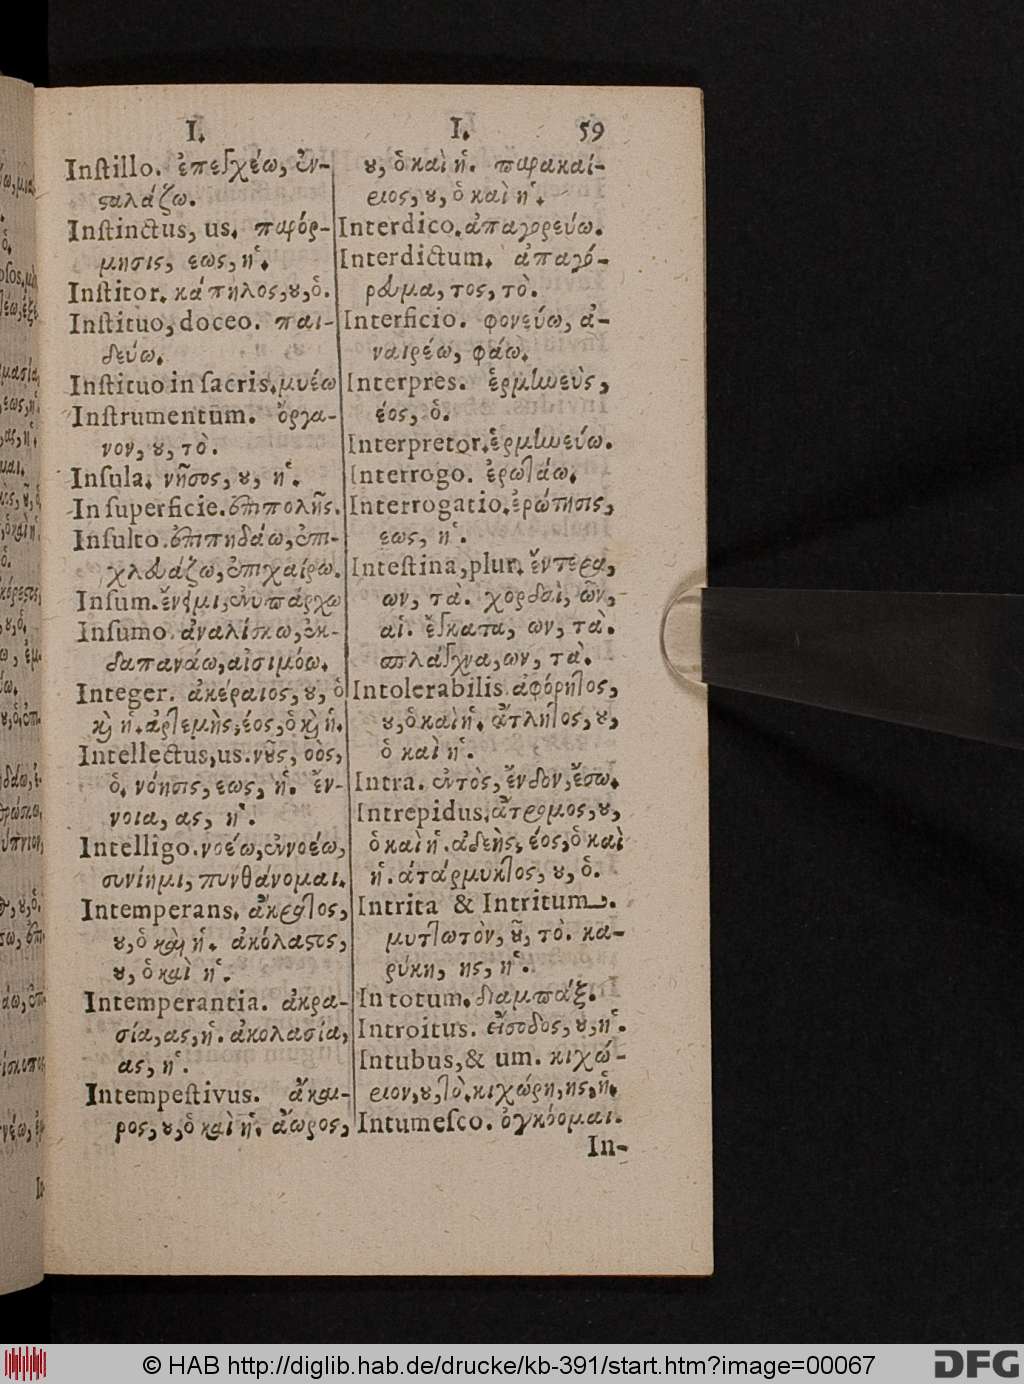 I. I. 59
Inſtillo. ἐπεγχέω, ἐν-
ςαλάζω.
Inſtinctus, us. παρόρ-
μησις, εως, ἡ.
Inſtitor. κάπηλος, ȣ, ὁ.
Inſtituo, doceo. παι-
δεύω.
Inſtituo in ſacris. μυέω
Inſtrumentum. ὄργα-
νον, ȣ, τὸ.
Inſula. νῆσος, ȣ, ἡ.
In ſuperficie. ἐπιπολῆς.
Inſulto. ἐπιπηδάω, ἐπι-
χλευάζω, ἐπιχαίρω.
Inſum. ἔνειμι, ἐνυπάρχω
Inſumo. ἀναλίσκω, ἐκ-
δαπανάω, αἰσιμόω.
Integer. ἀκέραιος, ȣ, ὁ
καὶ ἡ. ἀρτεμὴς, έος, ὁ καὶ ἡ.
Intellectus, us. νȣ͂ς, οὸς,
ὁ. νόησις, εως, ἡ. ἔν-
νοια, ας, ἡ.
Intelligo. νοέω, ἐννοέω,
συνίημι, πυνθάνομαι.
Intemperans. ἄκρατος,
ȣ, ὁ καὶ ἡ. ἀκόλαςος,
ȣ, ὁ καὶ ἡ.
Intemperantia. ἀκρα-
σία, ας, ἡ. ἀκολασία,
ας, ἡ.
Intempeſtivus. ἄκαι-
ρος, ȣ, ὁ καὶ ἡ. ἄωρος,
ȣ, ὁ καὶ ἡ. παρακαί-
ριος, ȣ, ὁ καὶ ἡ.
Interdico. ἀπαγορεύω.
Interdictum. ἀπαγό-
ρευμα, τος, τὸ.
Interficio. φονεύω, ἀ-
ναιρέω, φάω.
Interpres. ἑρμηνεὺς,
έος, ὁ.
Interpretor. ἑρμηνεύω.
Interrogo. ἐρωτάω.
Interrogatio. ἐρώτησις,
εως, ἡ.
Inteſtina, plur. ἔντερα,
ων, τὰ. χορδαὶ, ῶν,
αἱ. ἔγκατα, ων, τὰ.
σπλάγχνα, ων, τὰ.
Intolerabilis. ἀφόρητος,
ȣ, ὁ καὶ ἡ. ἄτλητος, ȣ,
ὁ καὶ ἡ.
Intra. ἐντὸς, ἔνδον, ἔσω.
Intrepidus. ἄτρομος, ȣ,
ὁ καὶ ἡ. ἀδεὴς, έος, ὁ καὶ
ἡ. ἀτάρμυκτος, ȣ, ὁ.
Intrita & Intritum.
μυτlωτὸν, ȣ͂, τὸ. κα-
ρύκη, ης, ἡ.
In totum. διαμπάξ.
Introitus. εἴσοδος, ȣ, ἡ.
Intubus, & um. κιχώ-
ριον, ȣ, τὸ. κιχώρη, ης, ἡ.
Intumeſco. ὀγκόομαι.
In-
© HAB http://diglib.hab.de/drucke/kb-391/start.htm?image=00067
DFG